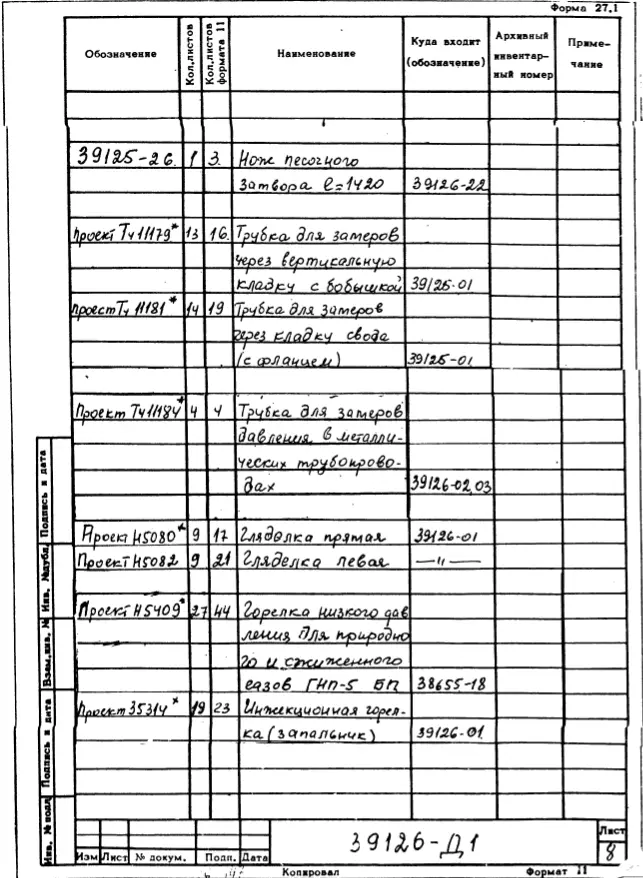 Форма 27.1
Обозначение Кол.листов Кол.листов формата 11 Наименование Куда входит (обозначение) Архивный инвентарный номер Примечание
39125-26. 1 3. Нож песочного
затвора ℓ=1420 39126-22
Проект Тч11179* 13 16. Трубка для замеров
через вертикальную
кладку с бобышкой 39125-01
проект Тч 11181* 14 19 Трубка для замеров
через кладку свода
(с фланцем) 39125-01
Проект Тч11184* 4 4 Трубка для замеров
давления в металли-
ческих трубопрово-
дах 39126-02,03
Проект Н5080* 9 17 Гляделка прямая 39126-01
Проект Н5082 9 21 Гляделка левая —"—
Проект Н5409* 27 44 Горелка низкого дав
ления для природно
го и сжиженного
газов ГНП-5 БП 38655-18
Проект 35314* 19 23 Инжекционная горел-
ка (запальник) 39126-01
Подпись и дата
Инв. № дубл.
Взам. инв. №
Подпись и дата
Инв. № подл
39126-Д1
Лист
8
Изм Лист № докум. Подп. Дата
Копировал Формат 11